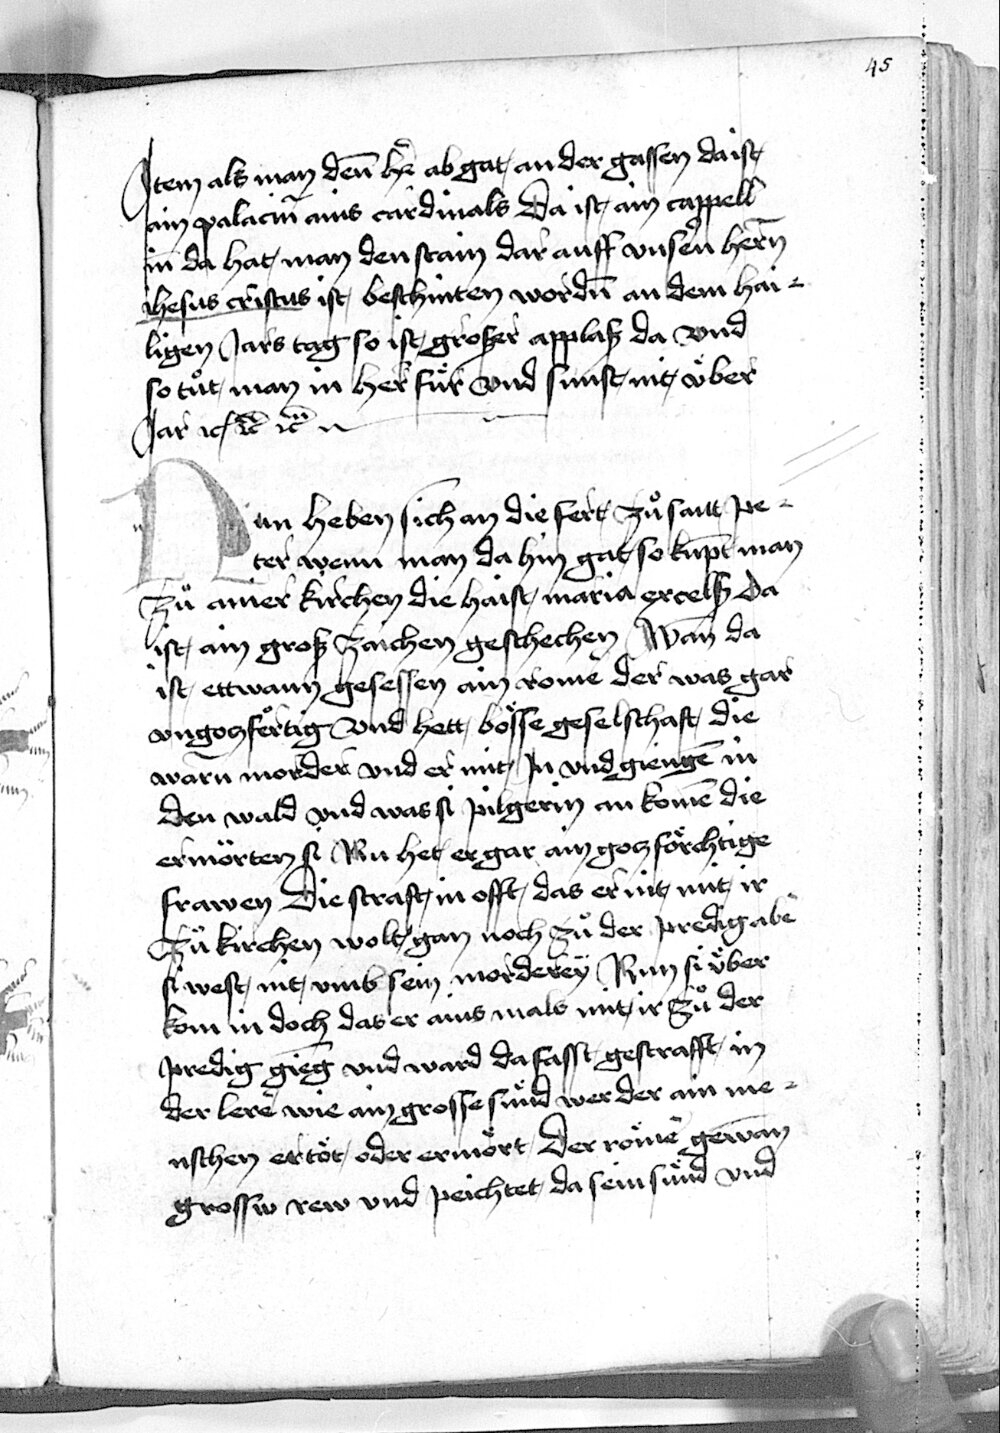 45
Item als man den̄ her̄ ab gat an der gassen da ist
ain palaciū ains cardinals Da ist ain cappell
in̄ da hat man den stain dar auff vnser̄n her̄n
ihesus cristus ist beschniten wordn̄ an dem hai-
ligen Jars tag so ist groszer applasz da vnd
so tůt man in her fu̍r vnd sunst nit v̈ber
Jar
Nun heben sich an die fert zů sant pe-
ter wenn man da hin gat so kūpt man
Zů ainer kirchen die haist maria excelsz da
ist ain grosz zaichen geschechen Wan̄ da
ist ettwann gesessen ain rome͂ der was gar
vngotzfërtig vnd hett bösse geselschaft die
warn̄ mörder vnd er mit In vnd giengē in
den wald vnd was si pilgerin an komē die
ermörten si Nu het er gar ain gotzförchtige
frawen Die straft in offt das er nit mit ir
Zů kirchen wolt gan noch zů der predig abe͂
si west nit vmb sein morderey Nun si v̈ber
kom in doch das er ains mals mit ir zů der
predig gieg̅ vnd ward da fasst gestrafft in
der lere͂ wie ain grosse sünd wer der ain me-
nschen ertöt oder ermört Der röme͂ gewan̄
grossw rew vnd peichtet da sein sünd vnd